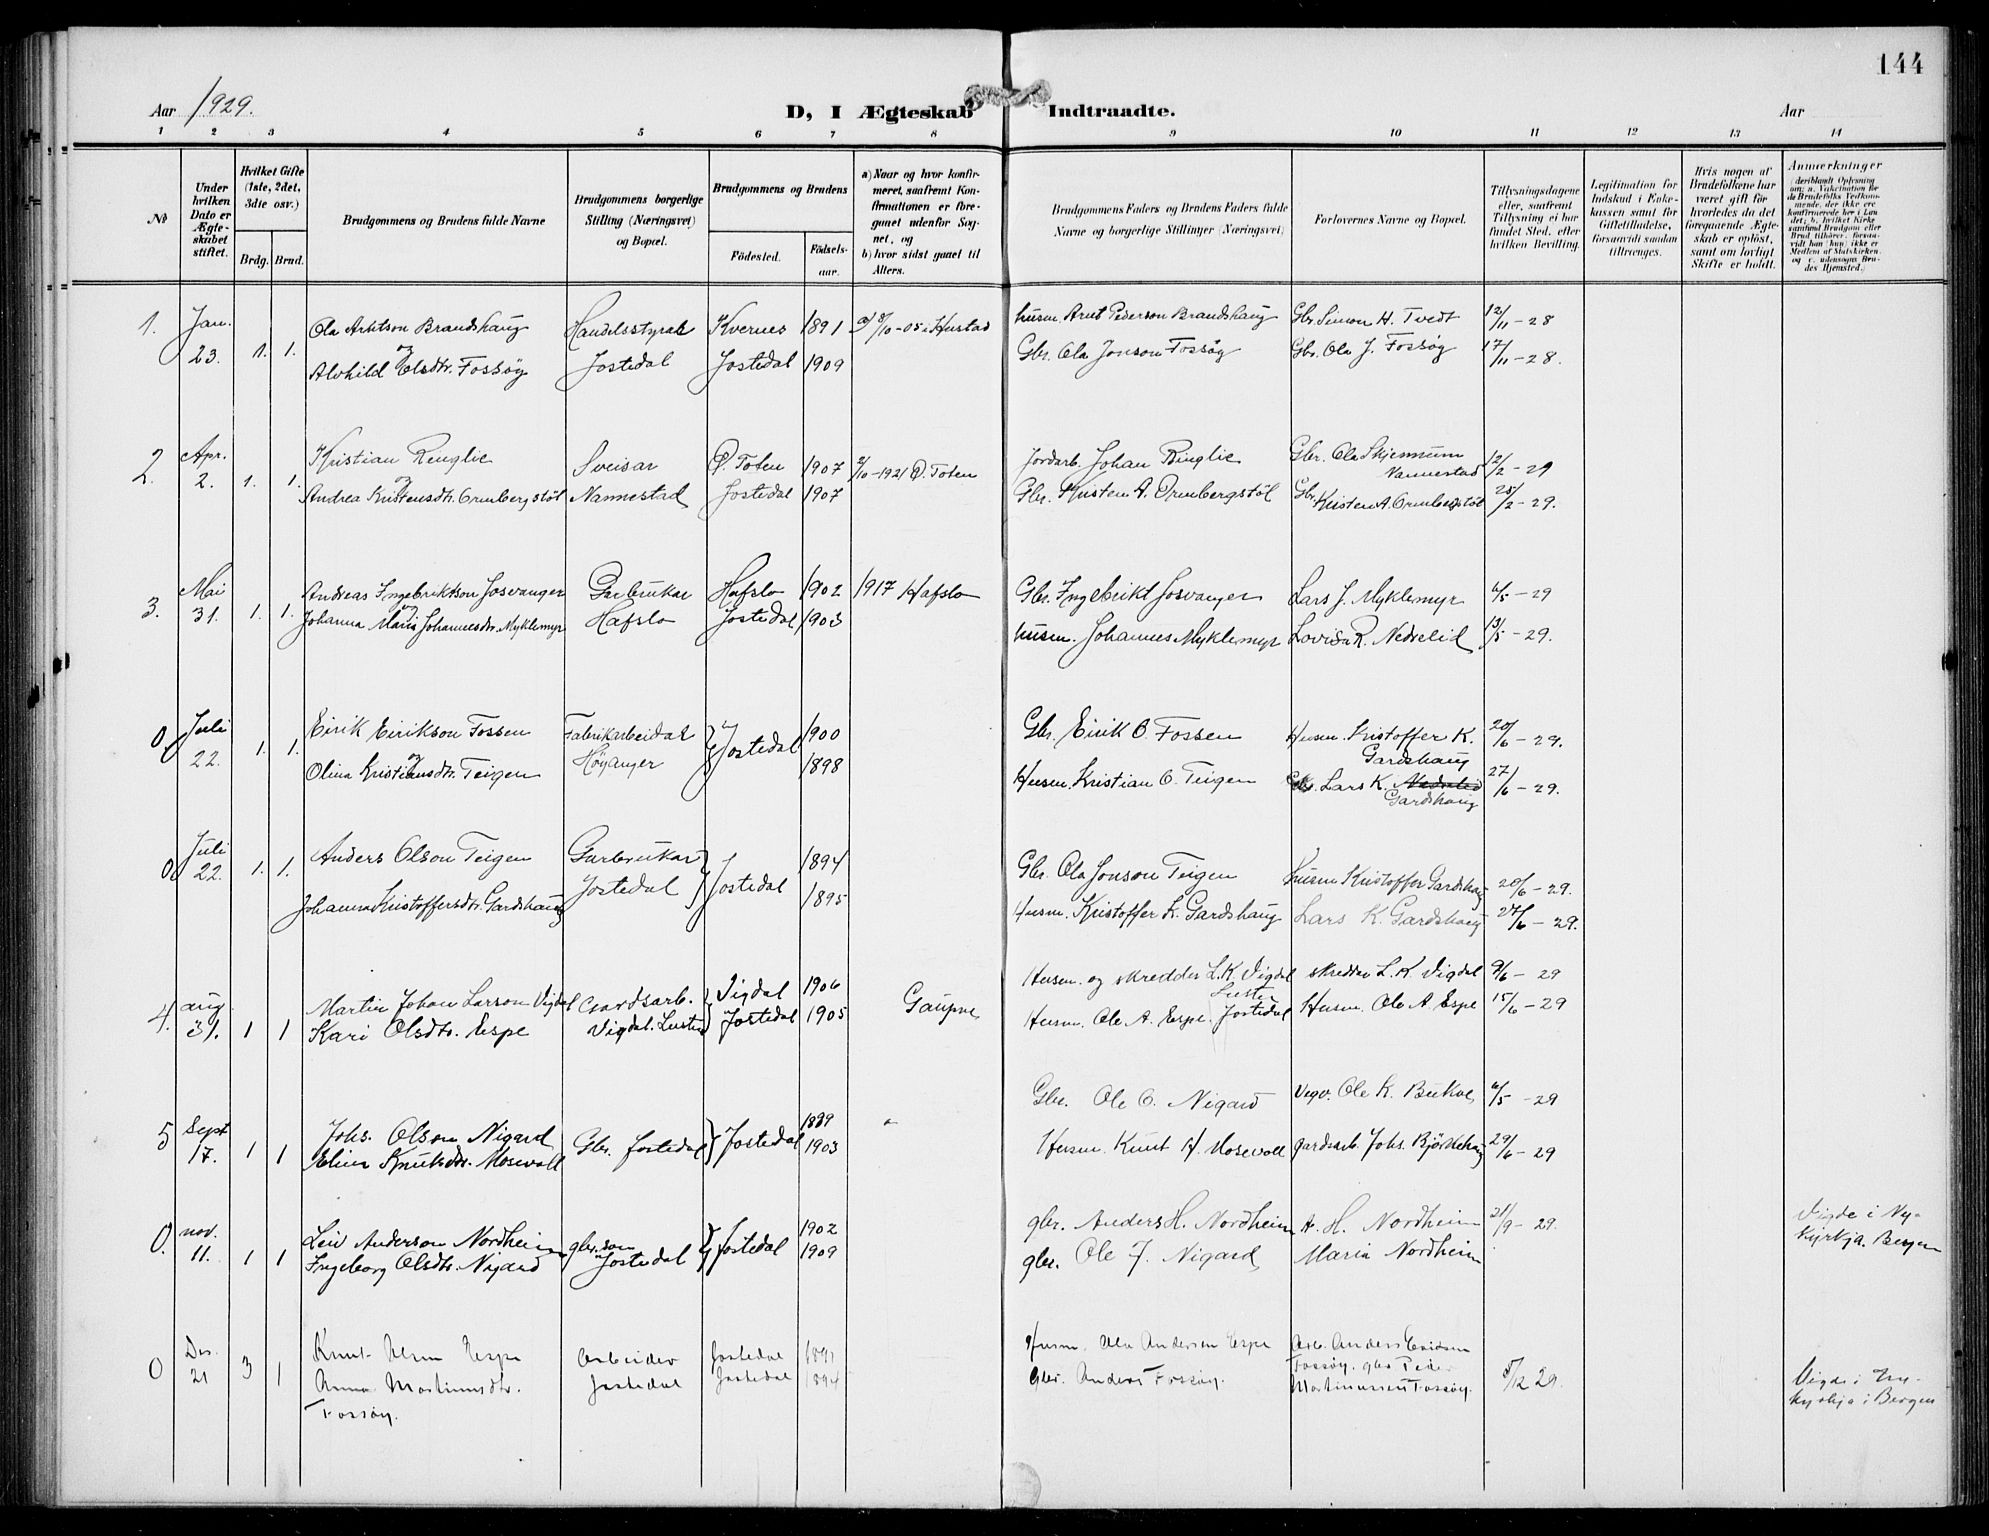 144
Aar 1929.
D, I Ægteskab Indtraadte.
Aar
1 2 3 4 5 6 7 8 9 10 11 12 13 14
No
Under hvilken Dato er Ægteskabet stiftet.
Hvilket Gifte (1ste, 2det, 3die osv.)
Brdg. Brud.
Brudgommens og Brudens fulde Navne
Brudgommens borgerlige Stilling (Næringsvei) og Bopæl.
Brudgommens og Brudens
Fødested. Fødselsaar.
a) Naar og hvor konfirmeret, saafremt Konfirmationen er foregaaet udenfor Sognet, og
b) hvor sidst gaaet til Alters.
Brudgommens Faders og Brudens Faders fulde Navne og borgerlige Stillinger (Næringsvei)
Forlovernes Navne og Bopæl.
Tillysningsdagene eller, saafremt Tillysning ei har fundet Sted, efter hvilken Bevilling.
Legitimation for Indskud i Enkekassen samt for Giftetilladelse, forsaavidt saadan tiltrænges.
Hvis nogen af Brudefolkene har været gift før hvorledes da det foregaaende Ægteskab er opløst, samt om lovligt Skifte er holdt.
Anmærkninger
1. Jan. 23. 1. 1. Ola Arntson Brandshaug Handelsstyrar Kvernes 1891 a) 8/10-05 i Hustad husm. Arnt Pederson Brandshaug Gbr. Simon H. Tvedt 12/11-28
og Alvhild Olsdtr. Fossøy Jostedal Jostedal 1909 Gbr. Ola Jonson Fossøy Gbr. Ola J. Fossøy 17/11-28.
2. Apr. 2. 1. 1. Kristian Ringlie Sveisar Ø. Toten 1907 2/10-1921 Ø. Toten Jordarb. Johan Ringlie Gbr. Ola Skjennum Nannestad 12/2-29
og Andrea Kristensdtr. Ormbergstøl Nannestad Jostedal 1907 Gbr. Kristen A. Ormbergstøl Gbr. Kristen A. Ormbergstøl 25/2-29.
3. Mai 31. 1. 1. Andreas Ingebriktson Josvanger Garbrukar Hafslo 1902 1917 Hafslo Gbr. Ingebrikt Josvanger Lars J. Myklemyr 4/5-29
og Johanna Marie Johannesdtr. Myklemyr Hafslo Jostedal 1903 husm. Johannes Myklemyr Lovisa R. Nedrelid 13/5-29.
0. Juli 22. 1. 1. Eirik Eirikson Fossen Fabrikarbeidar Jostedal 1900 Gbr. Eirik O. Fossen Husm. Kristoffer K. Gardshaug 20/6-29.
og Olina Kristiansdtr. Teigen Høyanger 1898 Husm. Kristian O. Teigen Lars K. Nedrelid Gardshaug 27/6-29.
0. Juli 22. 1. 1. Anders Olson Teigen Garbrukar Jostedal 1894 Gbr. Ola Jonson Teigen husm Kristoffer Gardshaug 20/6-29.
Johanna Kristoffersdtr. Gardshaug Jostedal 1895 Husm. Kristoffer K. Gardshaug Lars K. Gardshaug 27/6-29.
4. aug 31. 1 1 Martin Johan Larson Vigdal Gardsarb. Vigdal 1906 Gaupne Husm. og skredder L. K. Vigdal Luster skredder L. K. Vigdal 9/6-29
Kari Olsdtr. Espe Vigdal. Luster Jostedal 1905 Husm. Ole A. Espe. Jostedal Husm. Ole A. Espe 15/6-29
5 Sept 17. 1 1 Johs. Olson Nigard Gbr. Jostedal Jostedal 1899 " Gbr. Ole O. Nigard Vegv. Ole K. Bukve 6/5-29
Elina Knutsdtr. Mosevoll 1903 Husm. Knut H. Mosevoll gardsarb Johs. Bjørkhaug 29/6-29
0. nov. 11. 1 1 Leiv Anderson Nordheim gbr. son Jostedal Jostedal 1902 gbr. Anders H. Nordheim A. H. Nordheim 21/9-29. Vigde i Nykyrkja. Bergen
Ingeborg Olsdtr. Nigard 1909 gbr. Ole J. Nigard Maria Nordheim
0 Des. 21 3 1 Knut Olsen Espe Arbeider Jostedal Husm. Ola Andersen Espe Arb. Anders Fossøy. gbr Peder Martinussen Fossøy. 5/12 29. Vigde i Nykyrkja i Bergen
Anna Martinusdtr. Fossøy. Jostedal Jostedal 1894 Gbr. Anders Fossøy.